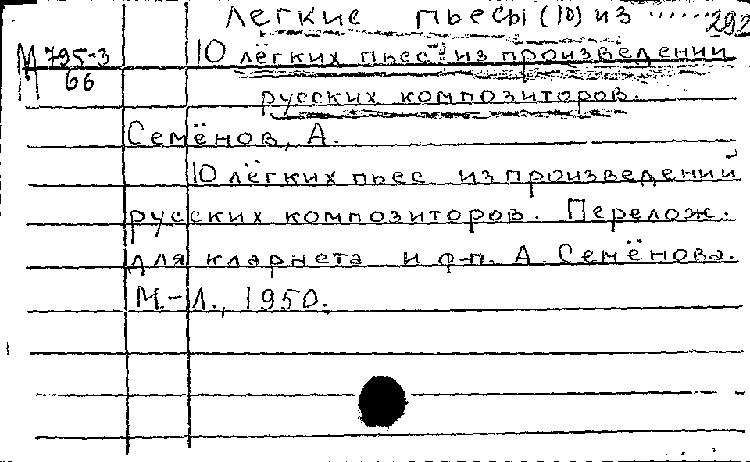 Легкие пьесы (10) из ...... 292
М 795-3
66
10 лёгких пьес из произведений
русских композиторов.
Семёнов, А.
10 лёгких пьес из произведений
русских композиторов. Перелож.
для кларнета и ф-п. А Семёнова.
М.-Л., 1950.